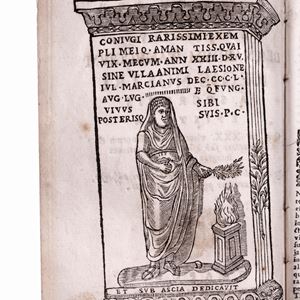 CONIVGI RARISSIMI EXEM
PLI MEIQ. AMAN TISS. QVAI
VIX. MECVM. ANN XXIII. D. XV.
SINE VLLA ANIMI LAESIONE
IVL. MARCIANVS DEC. C.C.C.L.
AVG. LVG. EQ. FVNG.
VIVVS SIBI
POSTERISQ SVIS. P. C.
ET SVB ASCIA DEDICAVIT